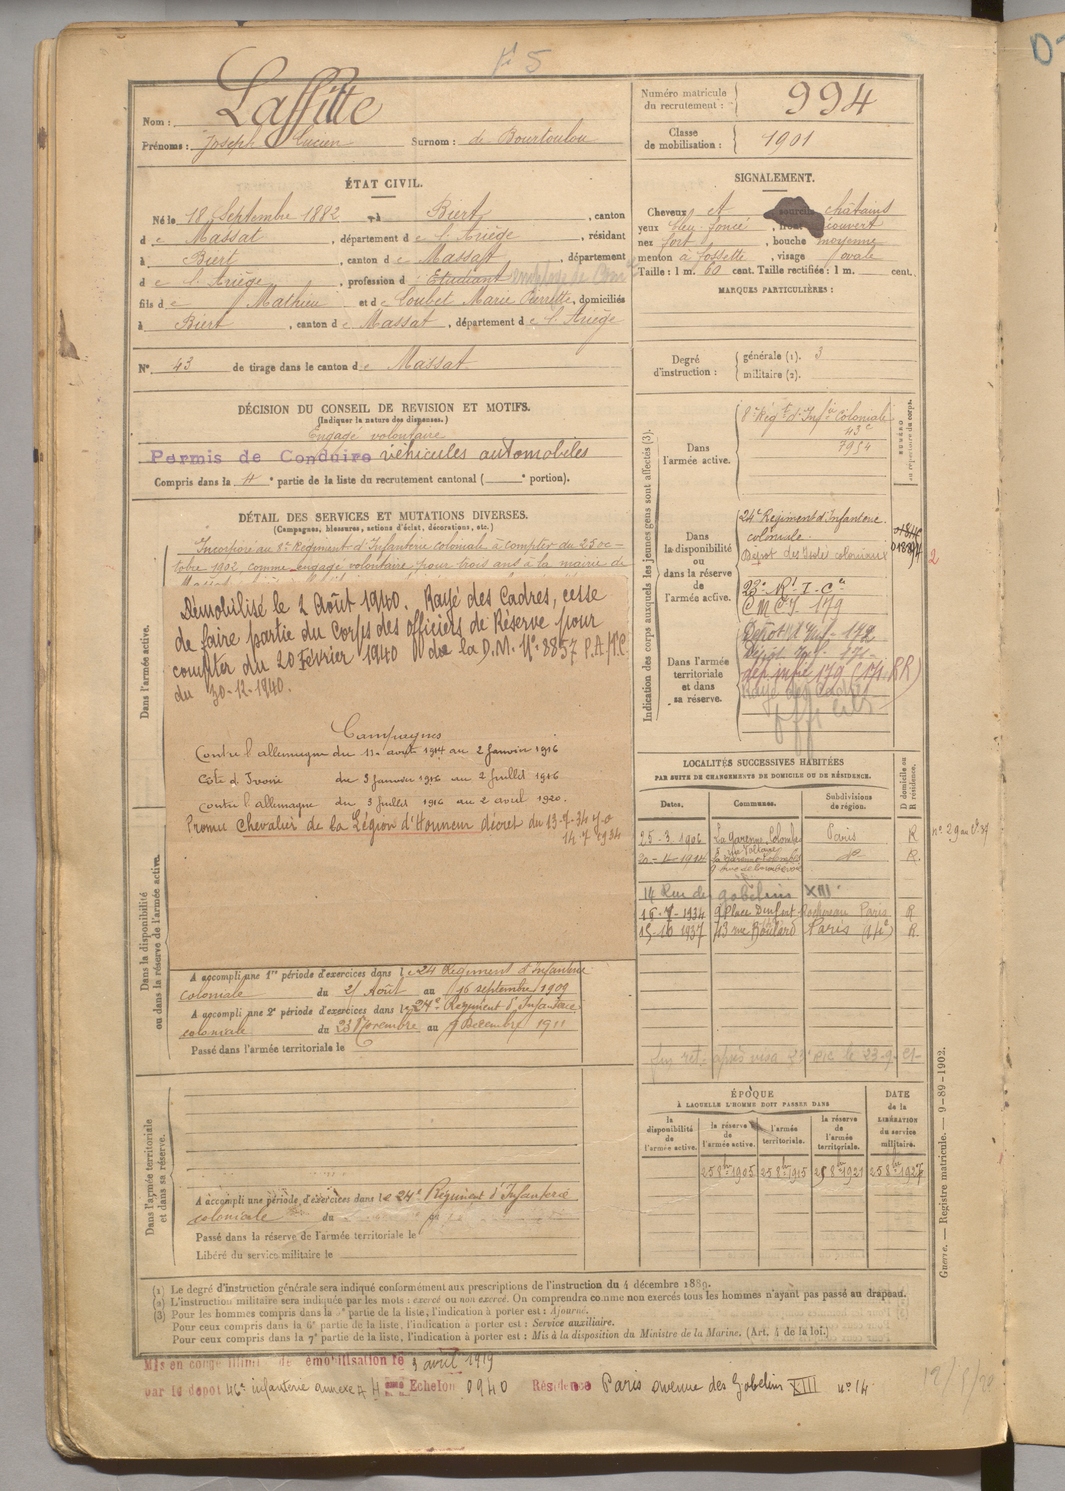 N° 5
Nom : Laffitte
Prénoms : Joseph Lucien Surnom : de Bourtoulou
ÉTAT CIVIL.
Né le 18 Septembre 1882, à Biert, canton
de Massat, département de l'Ariège, résidant
à Biert, canton de Massat, département
de l'Ariège, profession d Etudiant employé de Com
fils de Mathieu et de Loubet Marie Pierrette, domiciliés
à Biert, canton de Massat, département de l'Ariège
N° 43 de tirage dans le canton de Massat.
DÉCISION DU CONSEIL DE REVISION ET MOTIFS.
(Indiquer la nature des dispenses.)
Engagé volontaire
Permis de Conduire véhicules automobiles
Compris dans la 4e partie de la liste du recrutement cantonal ( e portion).
DÉTAIL DES SERVICES ET MUTATIONS DIVERSES.
(Campagnes, blessures, actions d'éclat, décorations, etc.)
Dans l'armée active.
Incorporé au 8e Régiment d'Infanterie coloniale à compter du 25 oc-
tobre 1902, comme engagé volontaire, pour trois ans à la mairie de
Démobilisé le 2 Août 1940. Rayé des Cadres, cesse
de faire partie du Corps des Officiers de Réserve pour
compter du 20 Février 1940 de la D.M. N° 8857 P.A./T.C.
du 30-12-1940.
Campagnes
Contre l'allemagne du 11 août 1914 au 2 Janvier 1916
Côte d'Ivoire du 3 Janvier 1916 au 2 Juillet 1916
Contre l'allemagne du 3 Juillet 1916 au 2 avril 1920.
Promu Chevalier de la Légion d'Honneur décret du 13-7-34 J.O
14 7 1934
Dans la disponibilité
ou dans la réserve de l'armée active.
A accompli une 1re période d'exercices dans le 24 Régiment d'Infanterie
coloniale du 21 Août au 16 septembre 1909
A accompli une 2e période d'exercices dans le 24e Régiment d'Infanterie
coloniale du 23 Novembre au 9 Décembre 1911
Passé dans l'armée territoriale le
Dans l'armée territoriale
et dans sa réserve.
A accompli une période d'exercices dans le 24e Régiment d'Infanterie
coloniale du au
Passé dans la réserve de l'armée territoriale le
Libéré du service militaire le
Numéro matricule
du recrutement : 994
Classe
de mobilisation : 1901
SIGNALEMENT.
Cheveux et sourcils châtains
yeux bleu foncé, front couvert
nez fort, bouche moyenne
menton à fossette, visage ovale
Taille : 1 m. 60 cent. Taille rectifiée : 1 m. cent.
MARQUES PARTICULIÈRES :
Degré
d'instruction :
générale (1). 3
militaire (2).
Indication des corps auxquels les jeunes gens sont affectés (3).
NUMÉRO
au répertoire du corps.
Dans
l'armée active.
8e Régt d'Infie Coloniale
43e
7954
Dans
la disponibilité
ou
dans la réserve
de
l'armée active.
24e Régiment d'Infanterie
coloniale.
Dépôt des Isolés coloniaux
2
23e Rt I. Ce
C M C I. 179
Dans l'armée
territoriale
et dans
sa réserve.
Dépôt d'Inf. 172
dep. infie 179 (174 RR)
Rayé des cadres
officiers
LOCALITÉS SUCCESSIVES HABITÉES
PAR SUITE DE CHANGEMENTS DE DOMICILE OU DE RÉSIDENCE.
Dates. Communes. Subdivisions de région. D domicile ou R résidence.
25-3-1906 La Garenne Colombe Paris R
5 rue Voltaire
20-4-1914 la Garenne Colombes do R.
14 Rue des gobelins XIII
16-7-1934 9 Place Denfert Rochereau Paris R
15-10-1937 43 rue Boulard Paris (14e) R.
ÉPOQUE
À LAQUELLE L'HOMME DOIT PASSER DANS
DATE
de la
LIBÉRATION
du service
militaire.
la disponibilité de l'armée active.
la réserve de l'armée active.
l'armée territoriale.
la réserve de l'armée territoriale.
25 8bre 1905 25 8bre 1915 25 8bre 1921 25 8bre 1927
Guerre. — Registre matricule. — 9-89-1902.
(1) Le degré d'instruction générale sera indiqué conformément aux prescriptions de l'instruction du 4 décembre 1889.
(2) L'instruction militaire sera indiquée par les mots : exercé ou non exercé. On comprendra comme non exercés tous les hommes n'ayant pas passé au drapeau.
(3) Pour les hommes compris dans la partie de la liste, l'indication à porter est : Ajourné.
Pour ceux compris dans la 6e partie de la liste, l'indication à porter est : Service auxiliaire.
Pour ceux compris dans la 7e partie de la liste, l'indication à porter est : Mis à la disposition du Ministre de la Marine. (Art. 4 de la loi.)
Mis en congé illimité de démobilisation le 3 avril 1919
par le dépôt 46e infanterie annexe A 4 Echelon 0940 Résidence Paris avenue des Gobelins XIII n° 14